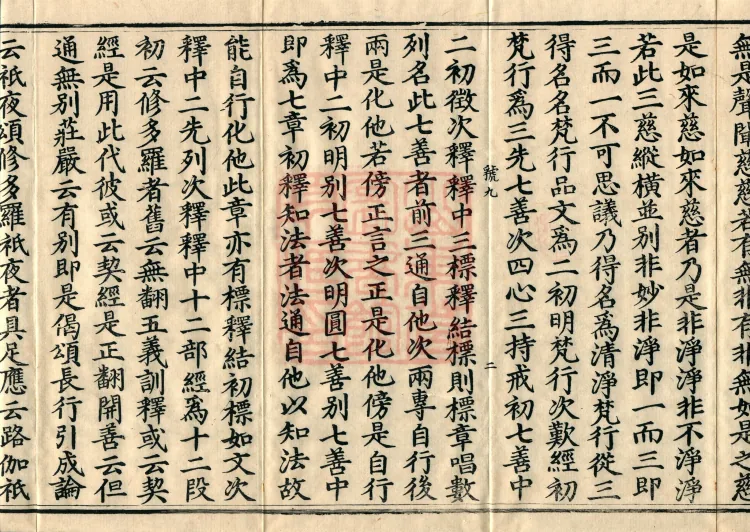 無是聲聞慈慈若有無非有非無如是之慈
是如來慈如來慈者乃是非淨淨非不淨淨
若此三慈縱橫並別非妙非淨即一而三即
三而一不可思議乃得名為清淨梵行從三
得名名梵行品文為二初明梵行次歎經初
梵行為三先七善次四心三持戒初七善中
號九
二
二初徵次釋釋中三標釋結標則標章唱數
列名此七善者前三通自他次兩專自行後
兩是化他若傍正言之正是化他傍是自行
釋中二初明別七善次明圓七善別七善中
即為七章初釋知法者法通自他以知法故
能自行化他此章亦有標釋結初標如文次
釋中二先列次釋釋中十二部經為十二段
初云修多羅者舊云無翻五義訓釋或云契
經是用此代彼或云契經是正翻開善云但
通無別莊嚴云有別即是偈頌長行引成論
云祇夜頌修多羅祇夜者具足應云路伽祇